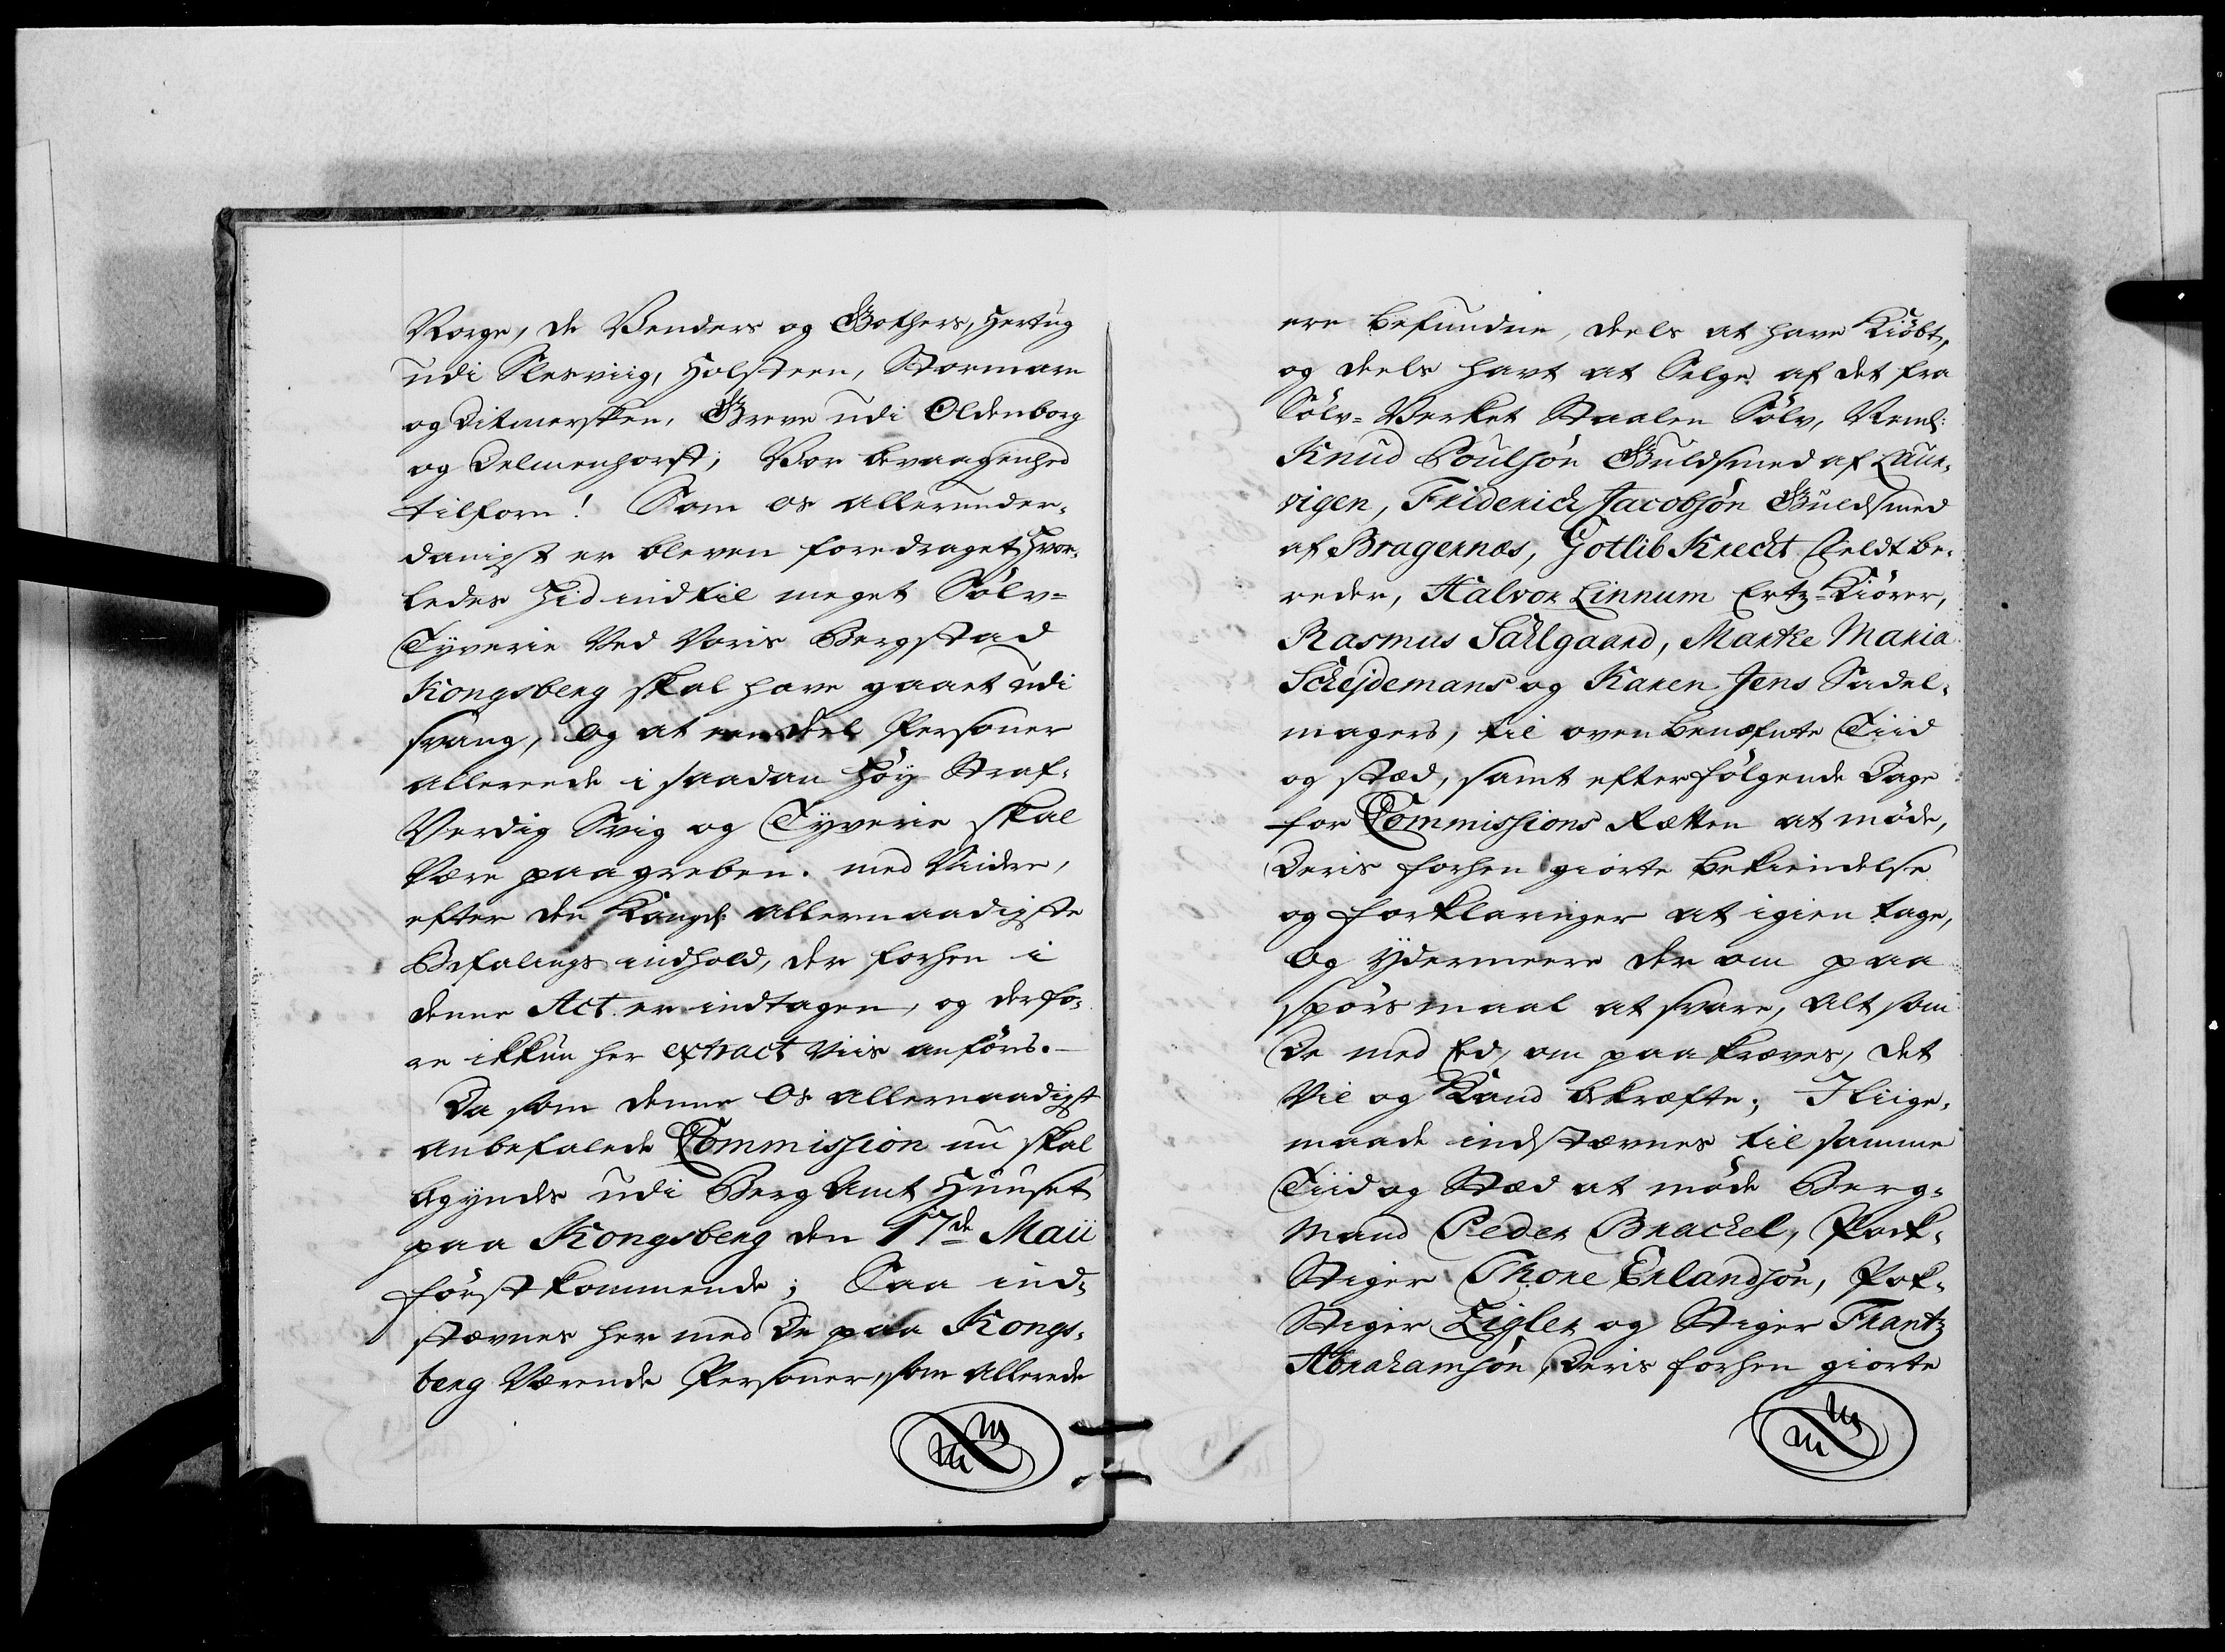 Norge, de Venders og Gothers, Hertug
udi Slesviig, Holsteen, Stormarn
og Ditmersken, Greve udi Oldenborg
og Delmenhorst; Vor bevaagenhed
tilforn! Som os allerunder-
danigst er bleven foredraget, Hvor-
ledes Hidindtil meget Sølv-
Tyverie Ved Voris Bergstad
Kongsberg skal have gaaet udi
svang, Og at een deel Personer
allereede i saadan Høy Straf-
Verdig Svig og Tyverie skal
være paagreben. med Viidere,
efter den Kongel: allernaadigste
Befalings indhold, der forhen i
denne Act er indtagen, og derfo-
re ikkun her extract Viis anførs.-
Da som denne Os allernaadigst
anbefalede Commission nu skal
begyndes udi Berg Amt Huuset
paa Kongsberg den 17de Maii
førstkommende; Saa ind-
stævnes her med De paa Kongs-
berg Værende Personer, som allerede
ere befundne, deels at have Kiøbt,
og deels havt at Selge af det fra
Sølv-Verket Staalen Sølv, Neml:
Knud Poulsøn Guldsmed af Laur-
vigen, Friderich Jacobsøn Guldsmed
af Bragernæs, Gotlib Knecht Feldtbe-
reder, Halvor Linnum Ertz-Kiører,
Rasmus Sahlgaard, Marthe Maria
Schejdemans og Karen Jens Sadel-
magers, til ovenbenæfnte Tiid
og stæd, samt efterfølgende Dage
for Commissions Retten at møde,
Deris forhen giorte bekiendelse
og forklaringer at igien tage,
Og ydermeere der om paa
spørsmaal at svare, Alt som
De med Ed, om paakræves, det
Vil og Kand bekræfte; Iliige-
maade indstævnes til samme
Tiid og Stæd at møde Berg-
Mand Peder Brachel, Pock-
Stiger Thore Erlandsøn, Pok-
Stiger Zigler og Stiger Frantz
Abrahamsøn, Deris forhen giorte